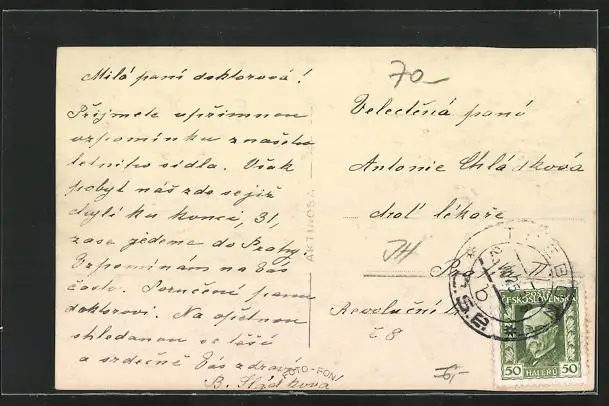 Milá paní doktorová!
Přijmete upřimnou
vzpomínku z našeho
letního sídla. Však
pobyt náš zde se již
chýlí ku konci, 31,
zase jedeme do Prahy.
Vzpomínám na Vás
často. Poručení panu
doktorovi. Na opětnou
shledanou se těší
a srdečně Vás zdraví
B. Sládkova
70-
Velectěná paní
Antonie Chládková
choť lékaře
JH
Revoluční
č 8
AKTINOSA
FOTO-FON
ČESKOSLOVENSKÁ
50 HALERU 50
6,-